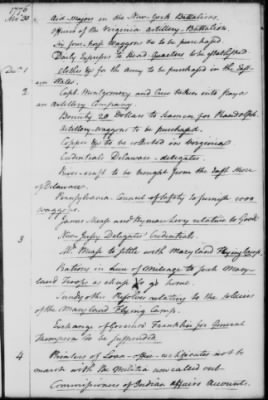 1776
Nov. 30. Aid-Majors in the New-York Battalions.
Officers of the Virginia Artillery-Battalion.
Six four-horse Waggons to be purchased
Daily Expresses to Head Quarters to be established
Decr. 1 Clothes &c for the Army to be purchased in the
States
2 Capt. Montgomery and Crew taken into pay as
an Artillery Company.
Bounty 20 Dollars to Seamen for Randolph.
Artillery-waggons to be purchased.
Copper &c to be collected in Virginia
Credentials Delaware-delegates.
Provisions to be bought from the East Shore
of Delaware.
Pennsylvania Council of Safety to furnish 1000
waggons.
James Mease and Hyman Levy relative to
New-Jersey Delegates' Credentials.
3 Mr. Mease to settle with Maryland Flying Camp.
Rations in Lieu of Mileage to such Mary-
land Troops as chuse to go home.
Sundry other Resolves relating to the Soldiers
of the Maryland Flying Camp.
Exchange of Governor Franklin for General
Thompson to be suspended
4 Printers of Loan-office-certificates not to
march with the Militia now called out
Commissioners of Indian Affairs Accounts.